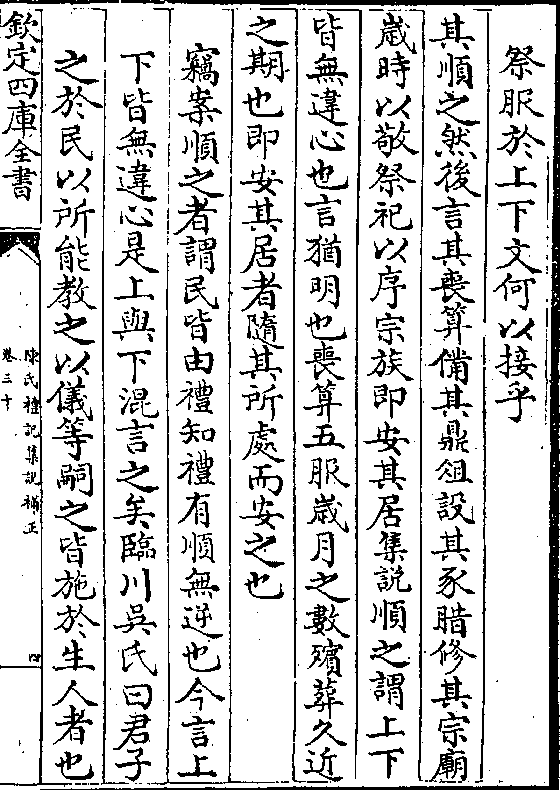 祭服於上下文何以接乎
其順之然後言其喪算備其鼎俎設其豕腊修其宗廟
歲時以敬祭祀以序宗族即安其居集說順之謂上下
皆無違心也言猶明也喪算五服歲月之數殯葬久近
之期也即安其居者隨其所處而安之也
竊案順之者謂民皆由禮知禮有順無逆也今言上
下皆無違心是上與下混言之矣臨川吳氏曰君子
之於民以所能教之以儀等嗣之皆施於生人者也
欽定四庫全書
陳氏禮記集說補正
卷三十
四